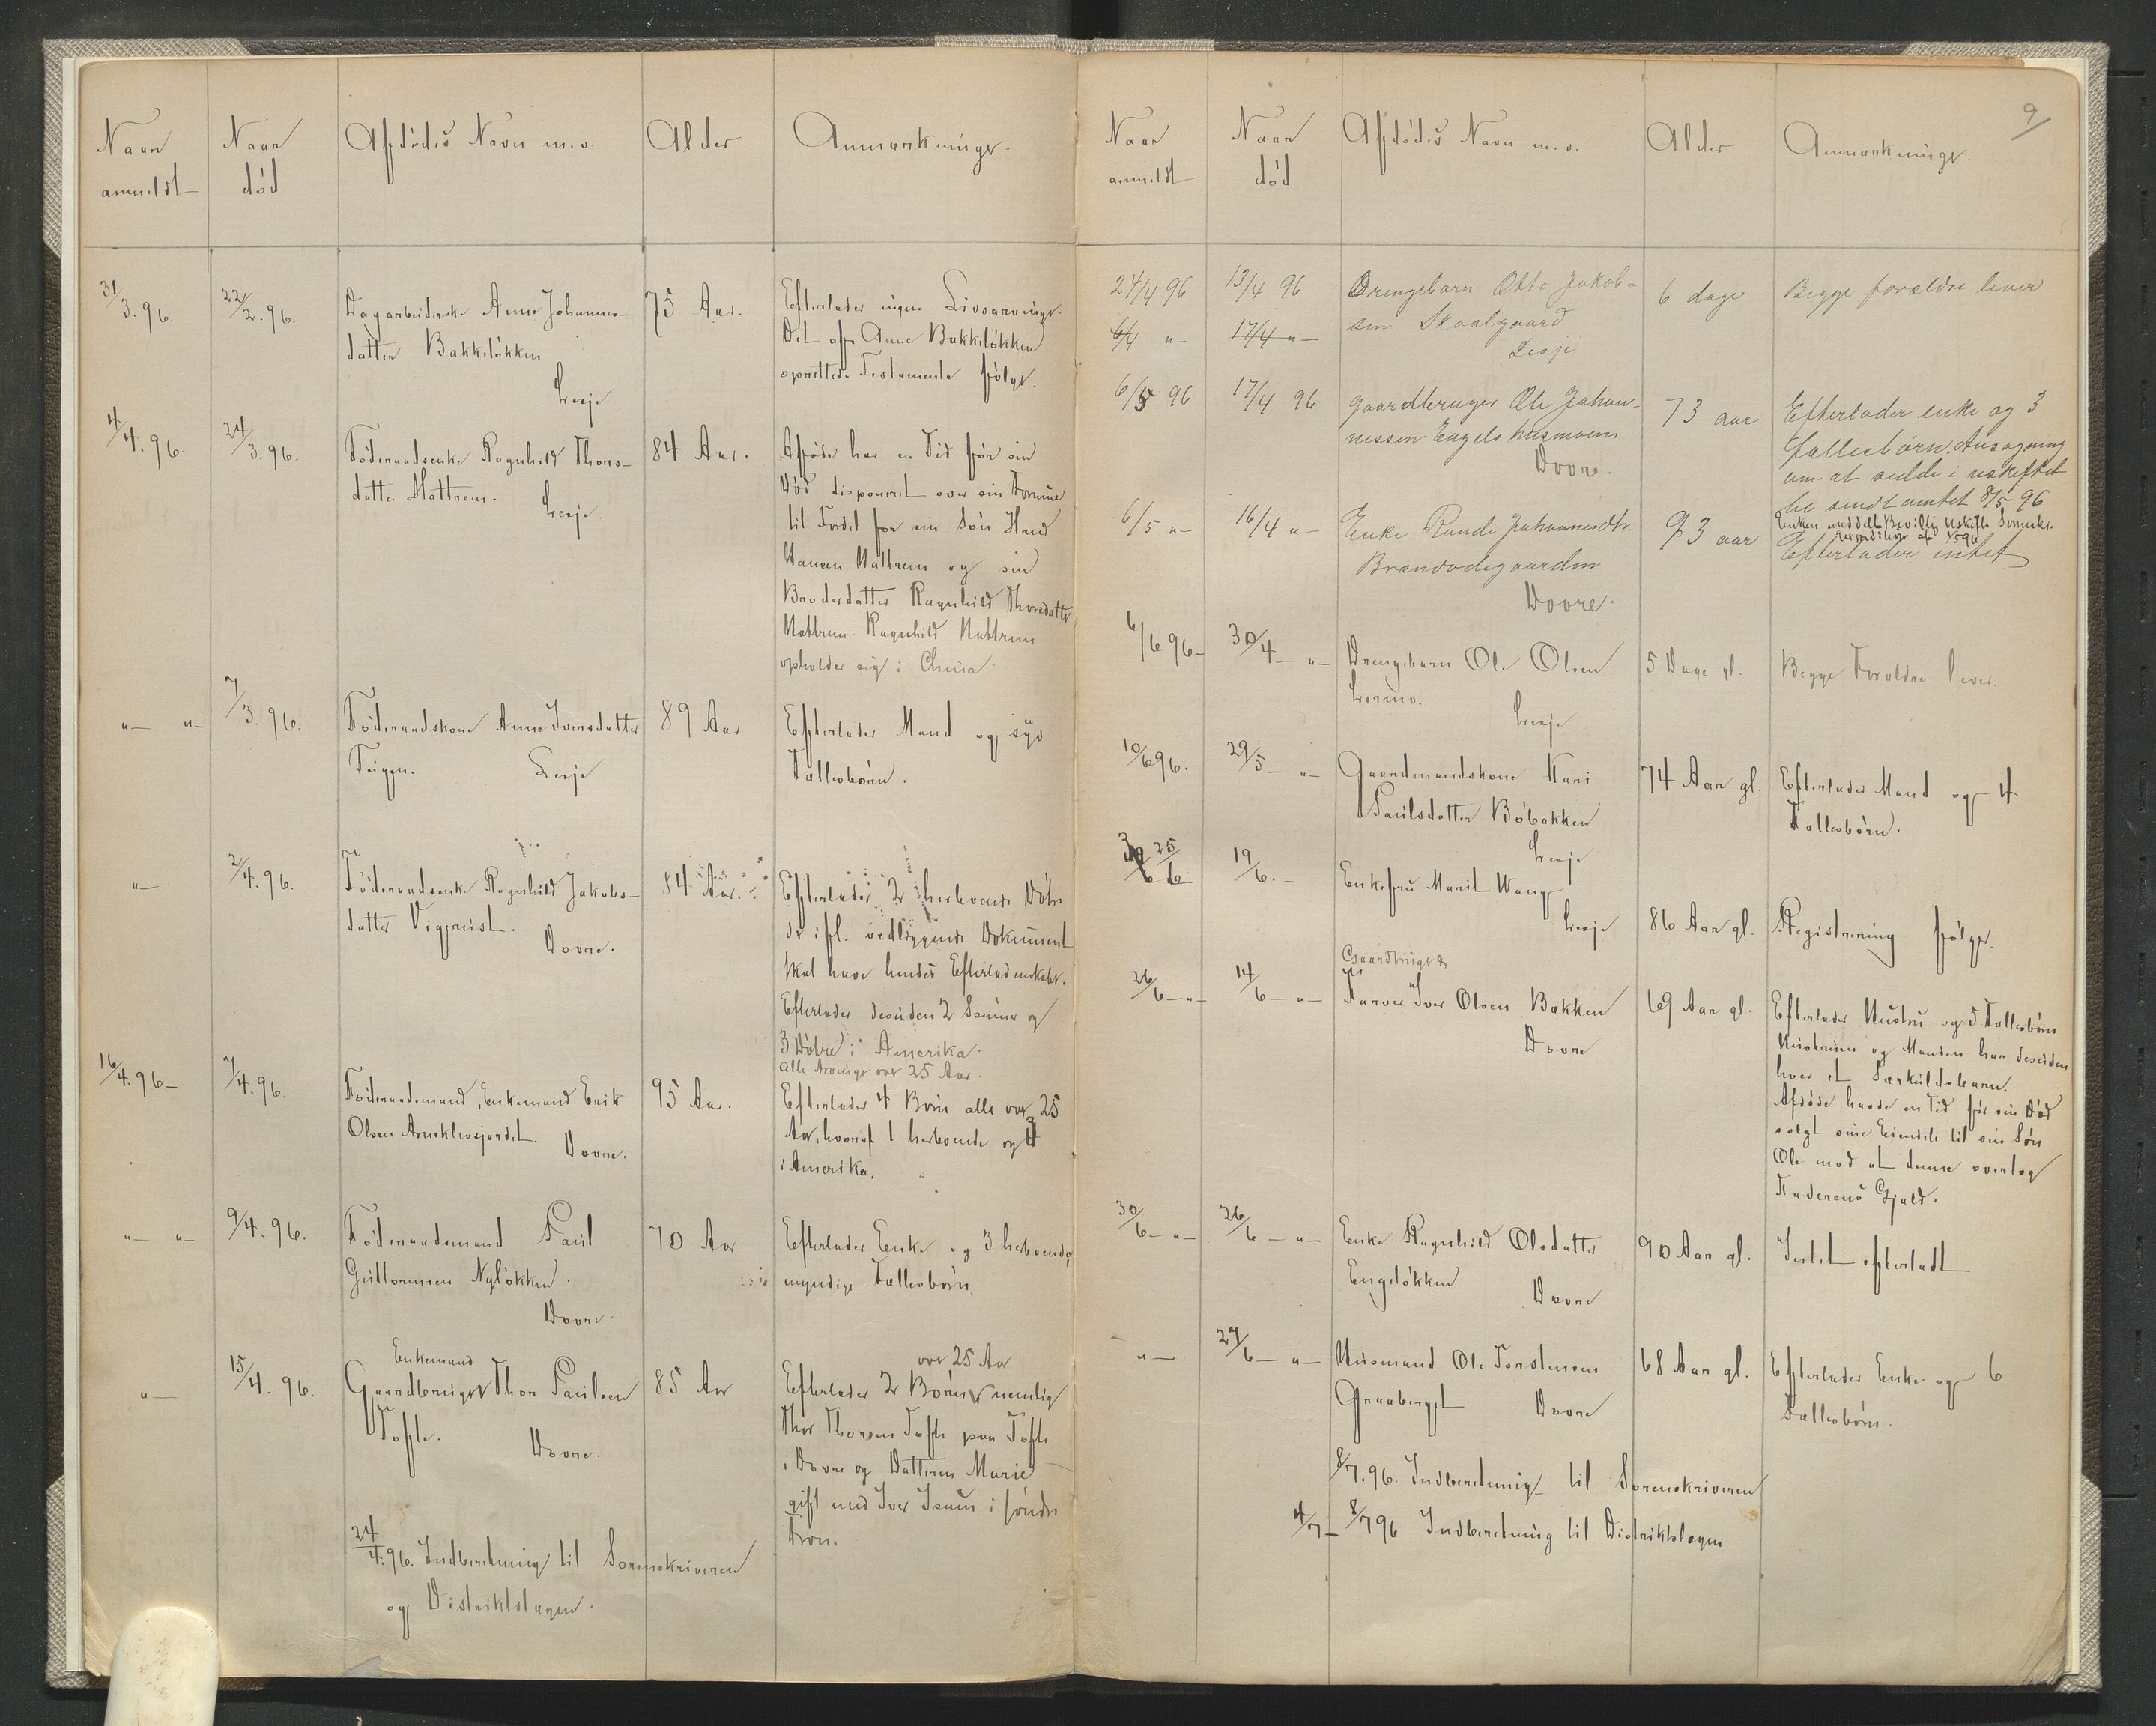 Naar
anmeldt
Naar
död
Afdödes Navn m.v.
Alder
Anmærkninger.
31/3.96.
22/2.96.
Dagarbeiderske Anne Johannes-
datter Bakkelökken
Lesje.
75 Aar.
Efterlader ingen Livsarvinger.
Det af Anne Bakkelökken
oprettede Testamente fölger.
4/4.96.
24/3.96.
Föderaadsenke Ragnhild Thors-
datter Hattrem.
Lesje.
84 Aar.
Afdöde har en Tid för sin
Död disponeret over sin Formue
til Fordel for sin Sön Hans
Hansen Hattrem og sin
Broderdatter Ragnhild Thorsdatter
Hattrem. Ragnhild Hattrem
opholder sig i China.
"— "—
7/3.96.
Föderaadskone Anne Iversdatter
Lesje
89 Aar
Efterlader Mand og syv
Fællesbörn.
"—
2/4.96.
Föderaadsenke Ragnhild Jakobs-
datter Vigerust.
Dovre.
84 Aar.
Efterlader 2 herboende Dötre
der ifl. vedliggende Dokument
skal have hendes Efterladenskaber.
Efterlader desuden 2 Sönner og
3 Dötre i Amerika.
Alle Arvinger over 25 Aar.
16/4.96—
7/4.96.
Föderaadsmand, Enkemand Erik
Olsen Arneklevsjordet.
Dovre.
95 Aar.
Efterlader 4 Börn alle over 25
Aar, hvoraf 1 herboende og 3
i Amerika.
"— "—
9/4.96.
Föderaadsmand Paul
Guttormsen Nylökken.
Dovre
70 Aar
Efterlader Enke og 3 herboende,
myndige Fællesbörn.
"—
15/4.96.
Enkemand
Gaardbruger Thor Paulsen
Tofte.
Dovre.
85 Aar
over 25 Aar
Efterlader 2 Börn, nemlig
Thor Thorsen Tofte paa Tofte
i Dovre og Datteren Marie
gift med Iver Isum i söndre
Fron.
24/4.96. Indberetning til Sorenskriveren
og Distriktslægen.
9
Naar
anmeldt
Naar
död
Afdödes Navn m.v.
Alder
Anmærkninger.
24/4 96
13/4 96
Drengebarn Otto Jakob-
sen Skaalgaard
Lesje
6 dage
Begge forældre lever
6/4 "—
17/4 "—
6/5 96
17/4 96
gaardbruger Ole Johan-
nessen Engels husmoen
Dovre.
73 aar
Efterlader enke og 3
fællesbörn. Ansögning
om at sidde i uskiftet
bo sendt amtet 8/5 96
Enken meddelt Bevillig Uskifte Sorenskr.
6/5 "—
16/4 "—
Enke Rønde Johannesdtr.
Brændvolgaarden
Dovre.
93 aar
Efterlader intet
6/6 96—
30/4— "—
Drengebarn Ole Olsen
Lormo.
Lesje
5 Dage gl.
Begge Forældre lever.
10/6 96.
29/5— "—
Gaardmandskone Kari
Paulsdatter Böbakken
Lesje
74 Aar gl.
Efterlader Mand og 4
Fællesbörn.
25/6
19/6.—
Enkefru Marit Wang
Lesje
86 Aar gl.
Registrering fölger.
26/6— "—
14/6— "—
Gaardbruger &
Farver Iver Olsen Bakken
Dovre
69 Aar gl.
Efterlader Hustru og 5 Fællesbörn
Hustruen og Manden har desuden
hver et Særkuldsbarn.
Afdöde havde en Tid för sin Död
solgt sine Eiendele til sin Sön
Ole mod at denne overtog
Faderens Gjæld.
30/6— "—
26/6— "—
Enke Ragnhild Olsdatter
Engelökken
Dovre
90 Aar gl.
Intet efterladt
"—
27/6— "—
Husmand Ole Torstensen
Graaberget
Dovre
68 Aar gl.
Efterlader Enke og 6
Fællesbörn.
8/7.96. Indberetning til Sorenskriveren
4/7— 8/7 96 Indberetning til Distriktslægen